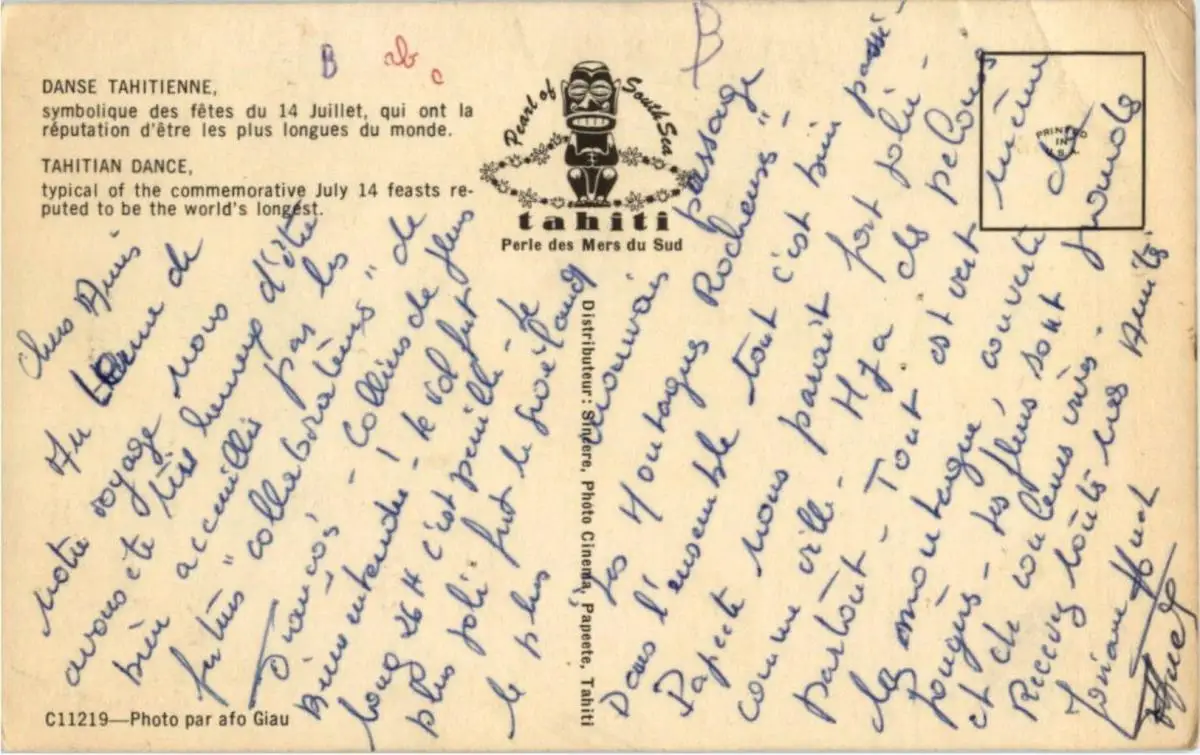 B ab c
DANSE TAHITIENNE,
symbolique des fêtes du 14 Juillet, qui ont la
réputation d'être les plus longues du monde.
TAHITIAN DANCE,
typical of the commemorative July 14 feasts re-
puted to be the world's longest.
Pearl of South Sea
tahiti
Perle des Mers du Sud
PRINTED
IN
U.S.A.
Distributeur: Sincere, Photo Cinema, Papeete, Tahiti
C11219—Photo par afo Giau
B
Chers Amis
Au terme de
notre voyage nous
avons été très heureux d'être
bien accueillis par les
futurs "collaborateurs" de
Colliers de fleurs
Bien entendu! le vol fut
long 26 H c'est pénible - le
plus joli fut le Groënland
le plus mauvais passage
Les Montagnes Rocheuses"-
Dans l'ensemble tout c'est bien passé-
Papeete nous parait fort jolie-
comme ville- Il y a des pelouses
partout- Tout est vert même
la montagne couverte de
fougères- les fleurs sont grands
et de couleurs vives.
Recevez toutes nos Amitiés
Josiane